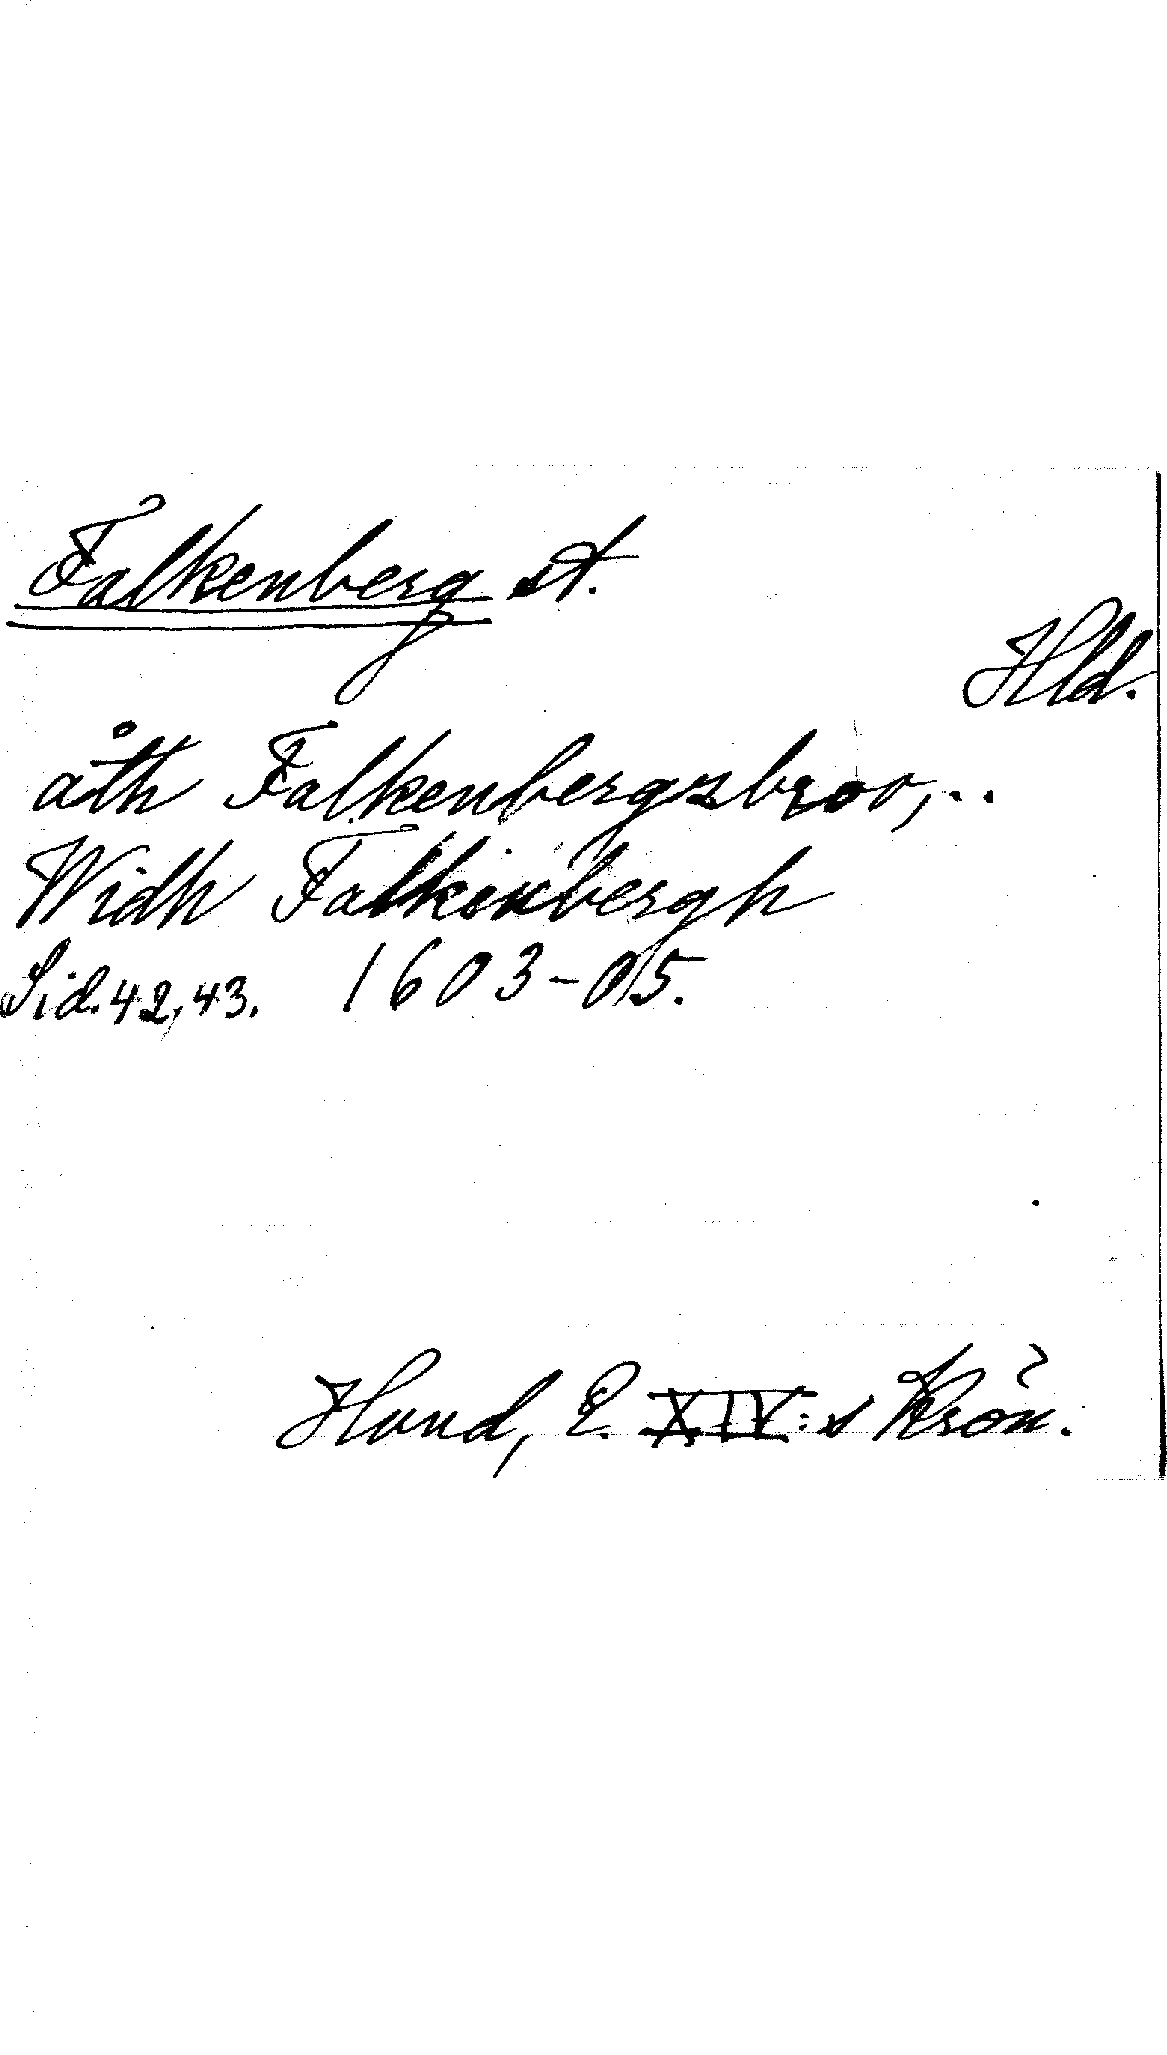 Falkenberg st.
Hld.
åth Falkenbergzbroo,..
Widh Falkinbergh
Sid. 42, 43. 1603-05.
Hund, E. XIV:s Krön.